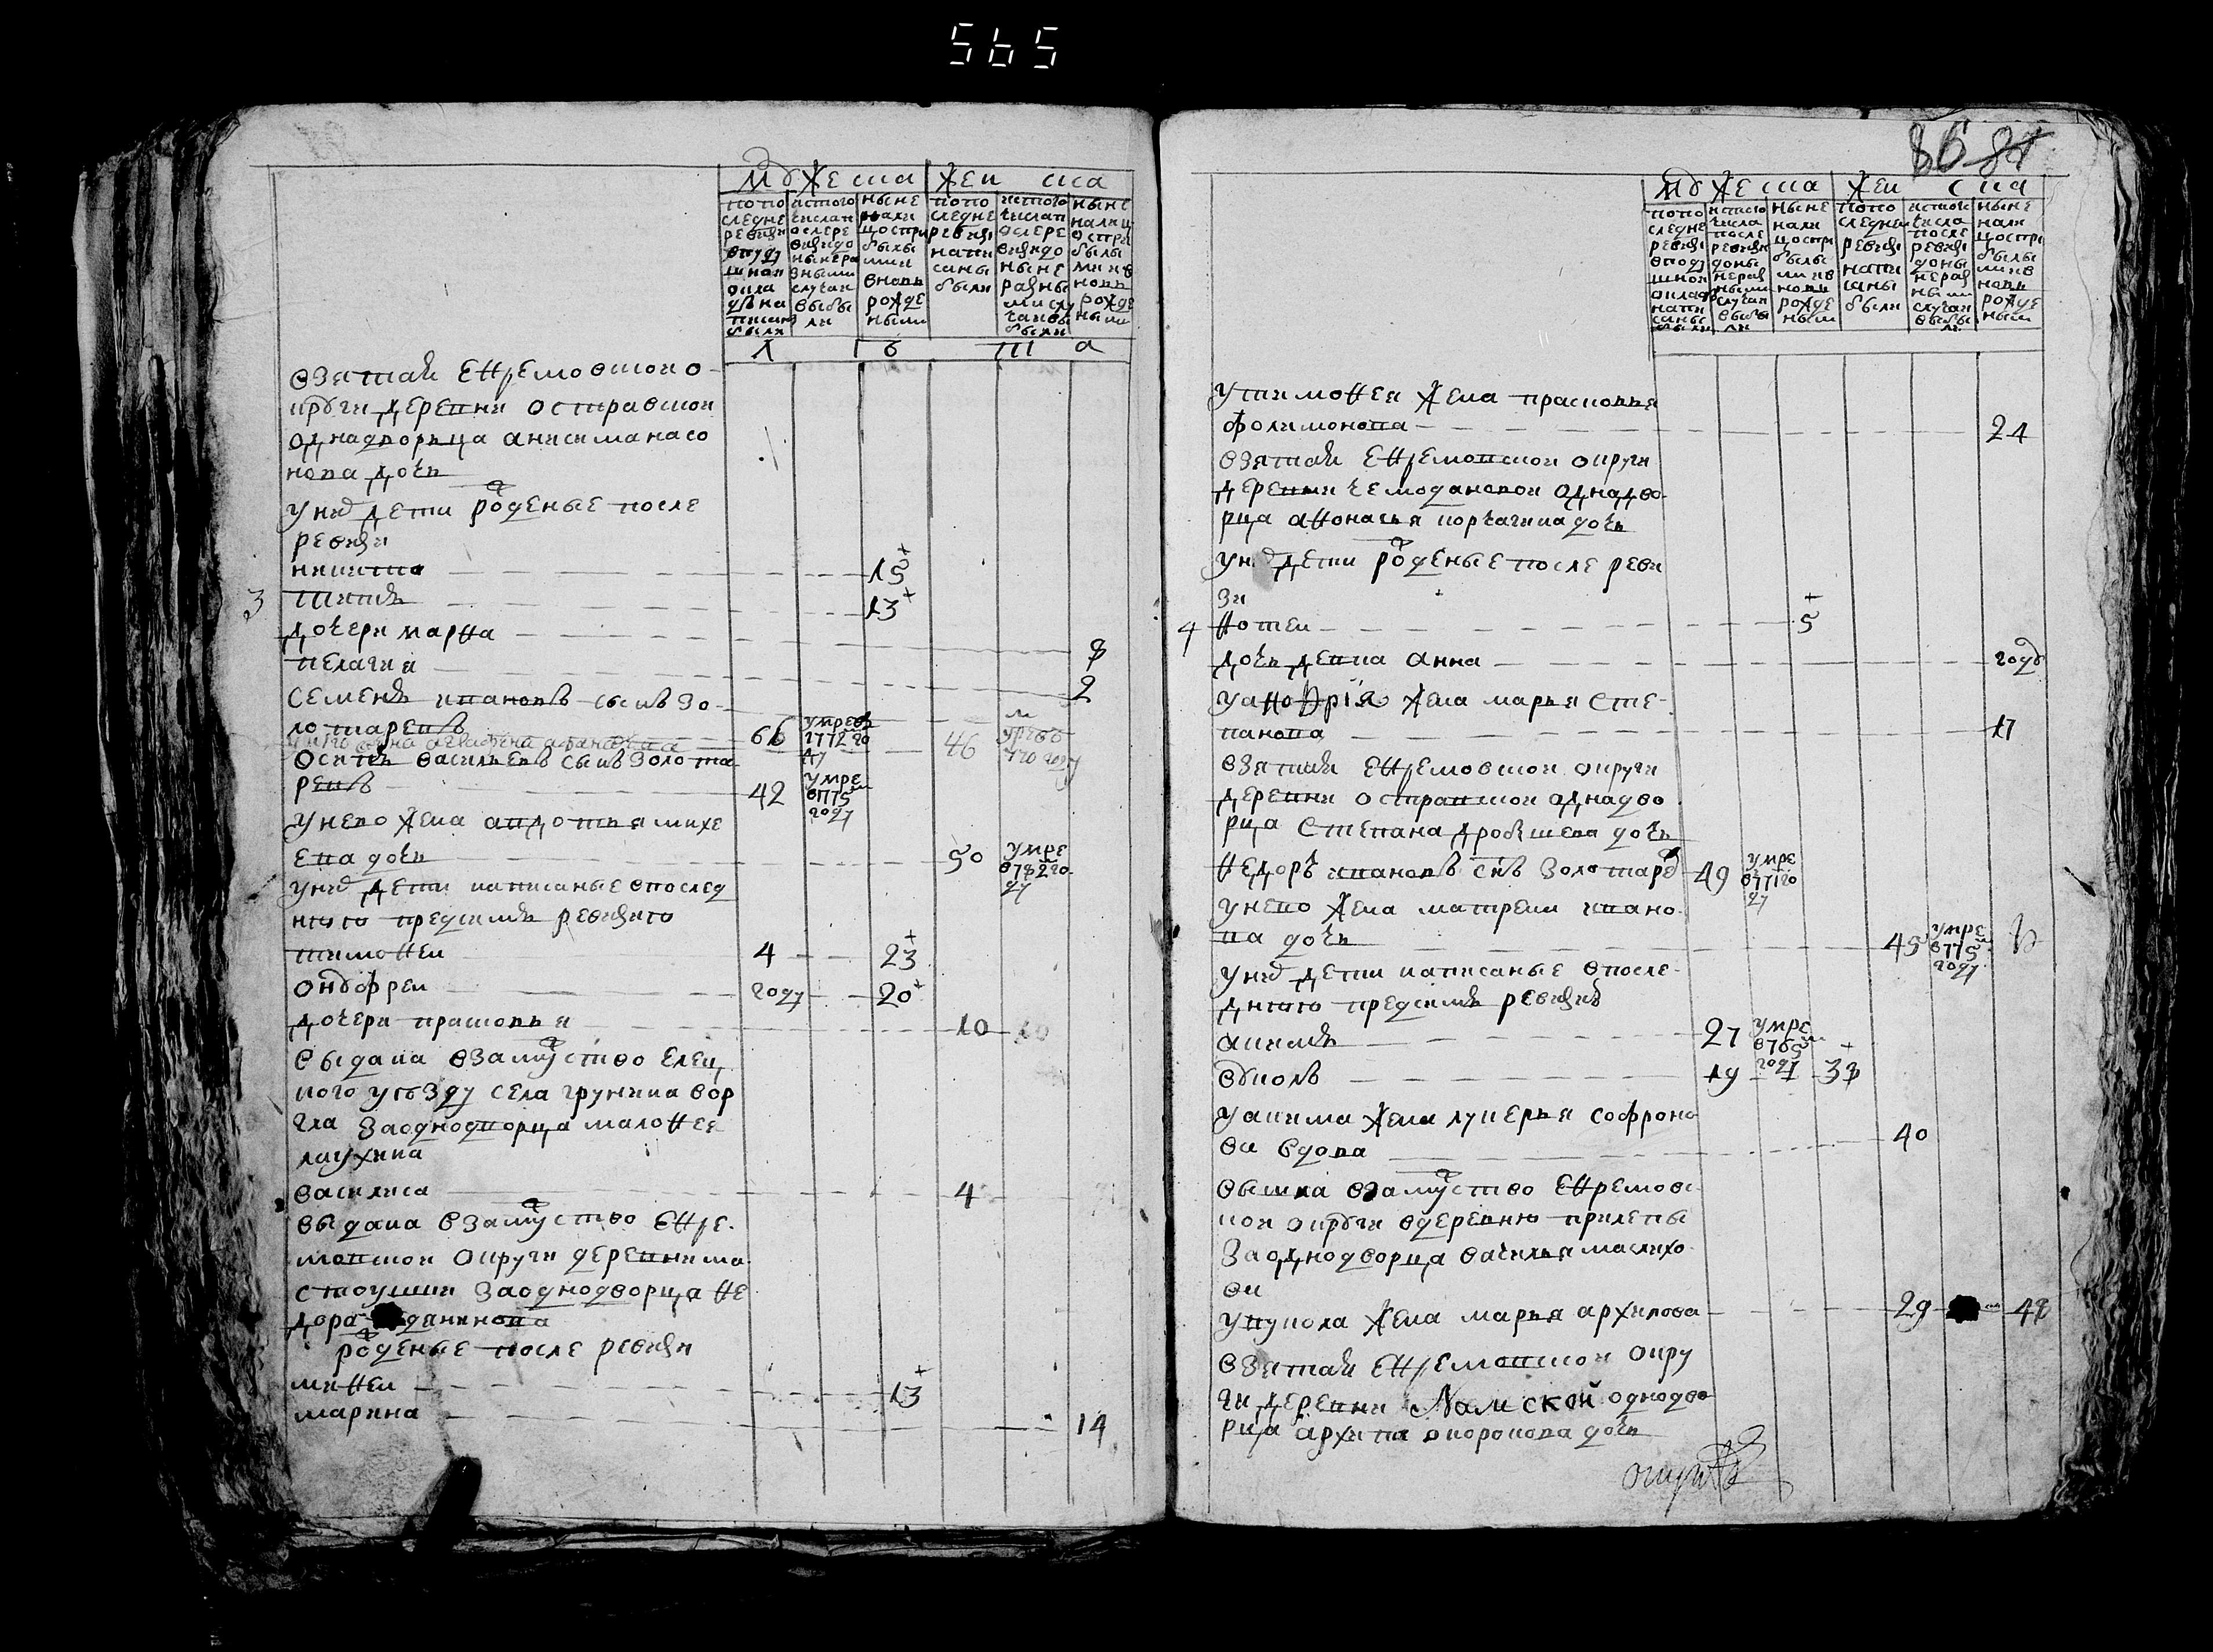 565
Мужеска Жен ска
попо
следне
ревизи
вподу
шной
окла
дъ на
писан
были
истого
числап
ослере
визидо
нынера
зными
случаи
выбы
ли
ныне
нали
цостри
былы
ми
вновь
рожде
ными
попо
следне
ревизи
напи
саны
были
истого
числап
ослере
визидо
ныне
разны
мислу
чаивы
были
ныне
налиц
остри
былы
мине
новь
рожде
ными
л ѣ т а
взятая Ефремовской о
круги деревни островской
однадворъца анисима насо
нова дочь
у них дети рожденые после
ревизи
никита 15
3
титъ 13
дочери марфа 8
пелагия 2
семенъ ивановъ сынъ зо-
лотаревъ 66 умре в 1772 го ду 46
осипъ васильевъ сынъ золота
ревъ 42 умре в 1775 м году
у нево жена авдотья михе
ева дочь 50 умре в 782 го ду
у них дети написаные впослед
нюю предсимъ ревизию
тимофеи 4 23
онуфреи году 20
дочери прасковья 10
выдана взамужство Елец
кого уѣзду села грунина вор
гла заоднодворца малофея
лаухина
василиса 4
выдана взамужство Ефре-
мовской округи деревни ма
заоднодворца фе
дора
рожденые после ревизи
мифеи 13
марина 14
86 87
Мужеска Жен ска
попо
следне
ревизи
вподу
шной
оклад
напи
саны
были
истого
числа
после
ревизи
доны
нераз
ными
случаи
выбы
ли
ныне
нали
цостри
былы
мине
новь
рожде
ными
попо
следнеи
ревизи
напи
саны
были
истого
числа
после
ревизи
доны
нераз
ными
случаи
выбы
ли
ныне
нали
цостри
былы
мине
новь
рожде
ными
у тимофея жена прасковья
фолимонова 24
взятая Ефремовской округи
деревни чемодановой однадво-
рца афонасья корчагина дочь
у них дети рожденые после реви
зи
4
фотеи 5
дочь девка анна году
у анофрия жена марья сте-
панова 17
взятая Ефремовской округи
деревни островской однадво
рца степана дробышева дочь
федоръ ивановъ снъ золотаре 49 умре в 771 го ду
у нево жена матрена ивано-
ва дочь 45 умре в 775 м году
у них дети написаные впосле-
днюю предсимъ ревизию
акимъ 27 умре в 765 м году
вуколъ 19 38
у акима жена лукерья софроно
ва вдова 40
вышла взамужство Ефремовс-
кой округи вдеревню прилепы
заоднодворца васильея маслихо-
ва
у вукола жена марья архипова 29 48
взятая Ефремовской окру
ги деревни однодво
рца архипа воронова дочь